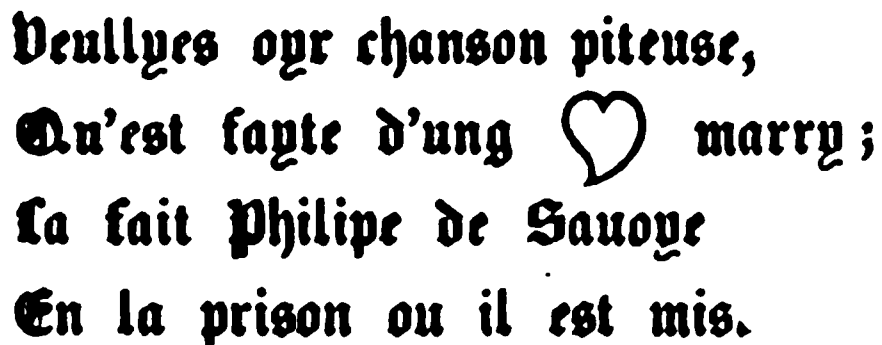 Veullyes oyr chanson piteuse,
Qu'est fayte d'ung ♥ marry;
La fait Philipe de Sauoye
En la prison ou il est mis.